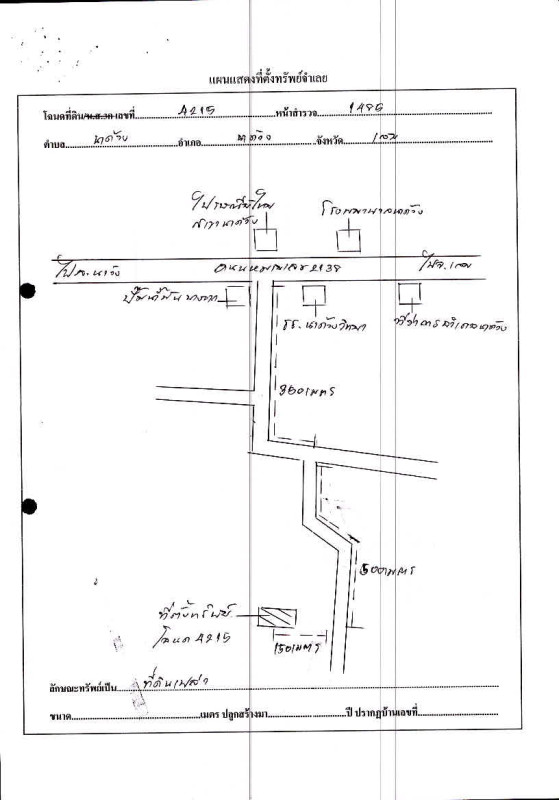 แผนแสดงที่ตั้งทรัพย์จำเลย
โฉนดที่ดิน/น.ส.3ก เลขที่ 4215 หน้าสำรวจ 1486
ตำบล นาด้วง อำเภอ นาด้วง จังหวัด เลย
ไปรษณีย์ไทย
สาขานาด้วง
โรงพยาบาลนาด้วง
ถนนหมายเลข 2138
ไปจ.เลย
ปั๊มน้ำมัน
รร.นาด้วงวิทยา
ที่ว่าการอำเภอนาด้วง
360เมตร
500เมตร
ที่ตั้งทรัพย์
โฉนด 4215
150เมตร
ลักษณะทรัพย์เป็น ที่ดินเปล่า
ขนาด เมตร ปลูกสร้างมา ปี ปรากฏบ้านเลขที่